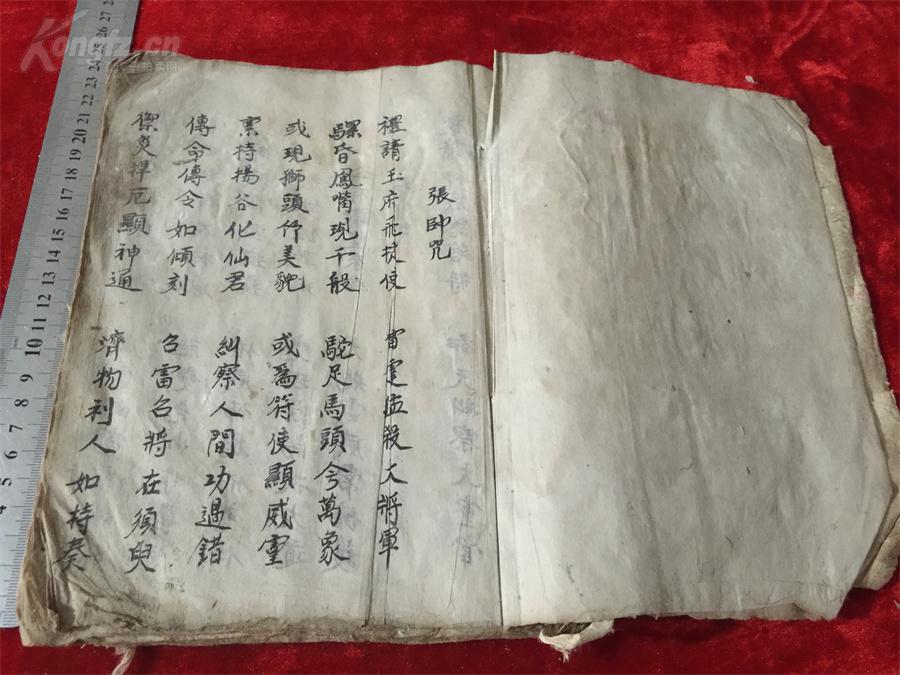 張帥咒
禮請玉府飛捷使 雷霆猛殺大將軍
騾昏鳳嘴現千般 駝足馬頭今萬象
或現獅頭作美貌 或為符使顯威靈
稟持揚谷化仙君 糾察人間功過錯
傳命傳令如傾刻 召雷召將在須臾
禦災捍厄顯神通 濟物利人如持奏
Kongfz.cn